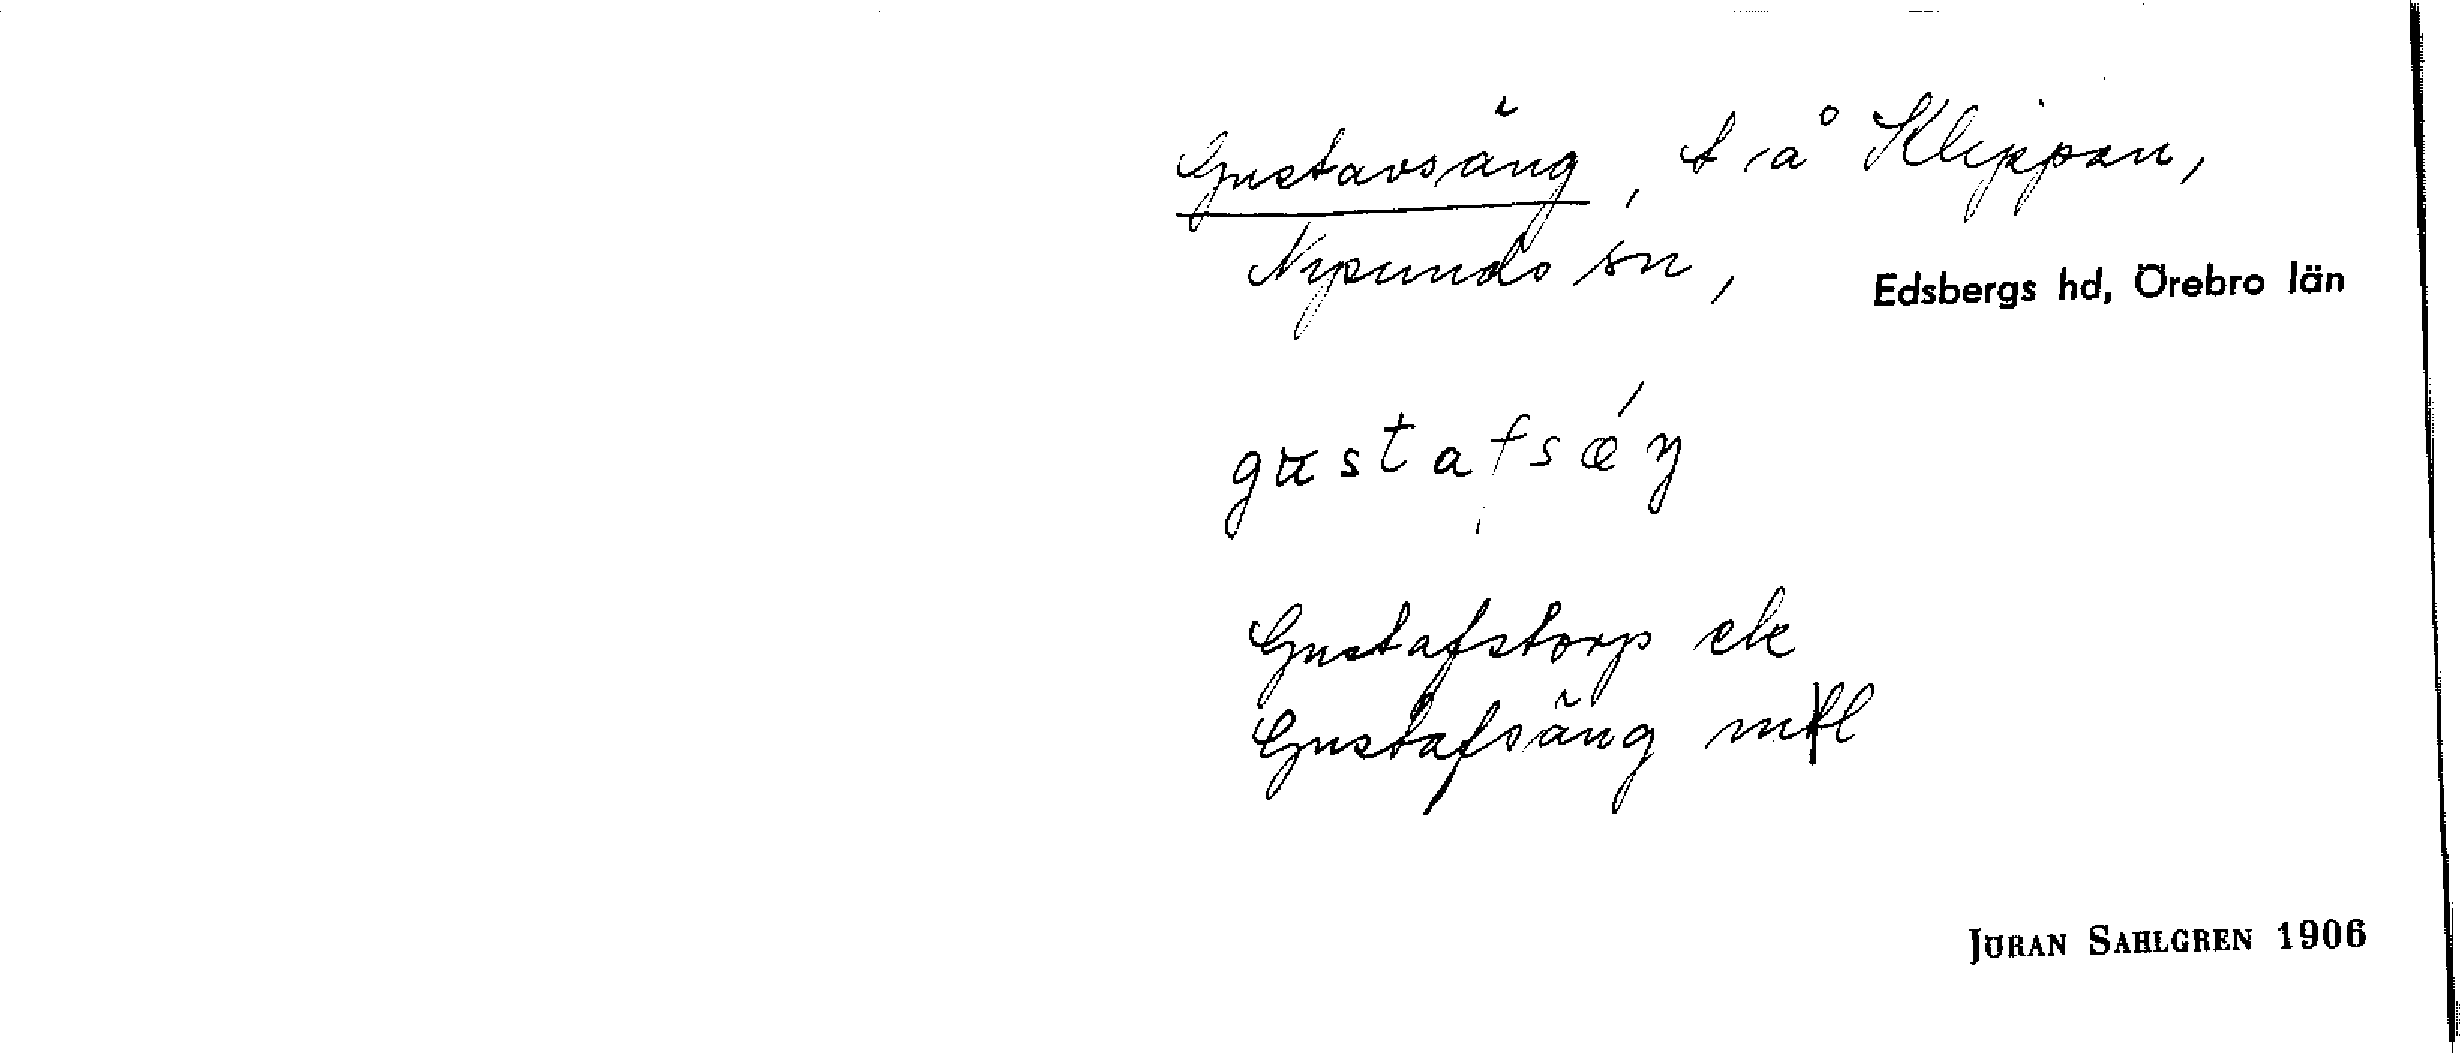 Gustavsäng, t å Klippan,
Nysunds sn, Edsbergs hd, Örebro län
gustafsǽŋ
Gustafstorp ek
Gustafsäng mtl
JÖRAN SAHLGREN 1906